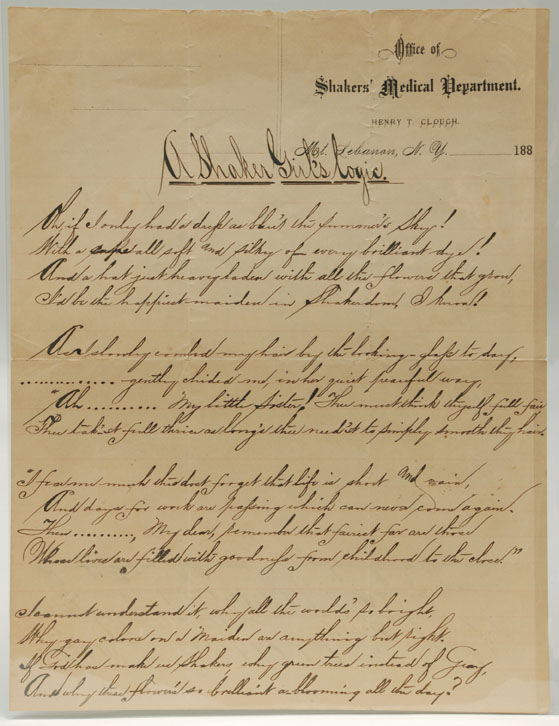 Office of
Shakers' Medical Department.
HENRY T. CLOUGH.
Mt. Lebanon, N. Y. 188
A Shaker Girl's Logic.
Oh if I only had a dress as blue's the summer's sky!
With a all soft and silky of every brilliant dye!
And a hat just heavy laden with all the flowers that grow,
I'd be the happiest maiden in Shakerdom, I know!
As I slowly combed my hair by the looking-glass to day,
............... gently chided me, in her quiet peaceful way,
"Ah .......... My little sister! Thee must think thyself full fair
Thee tak'st full thrice as long's thee need'st to simply smooth thy hair.
"I fear me much thee dost forget that life is short and vain,
And days for work are passing which can never come again.
Then .........., My dear, remember that fairest far are those
Whose lives are filled with goodness from childhood to the close!"
I cannot understand it, why all the world's so bright,
Why gay colors on a Maiden are anything but right.
If God has made us Shakers, why green trees instead of Gray,
And why these flowers so brilliant a-blooming all the day?